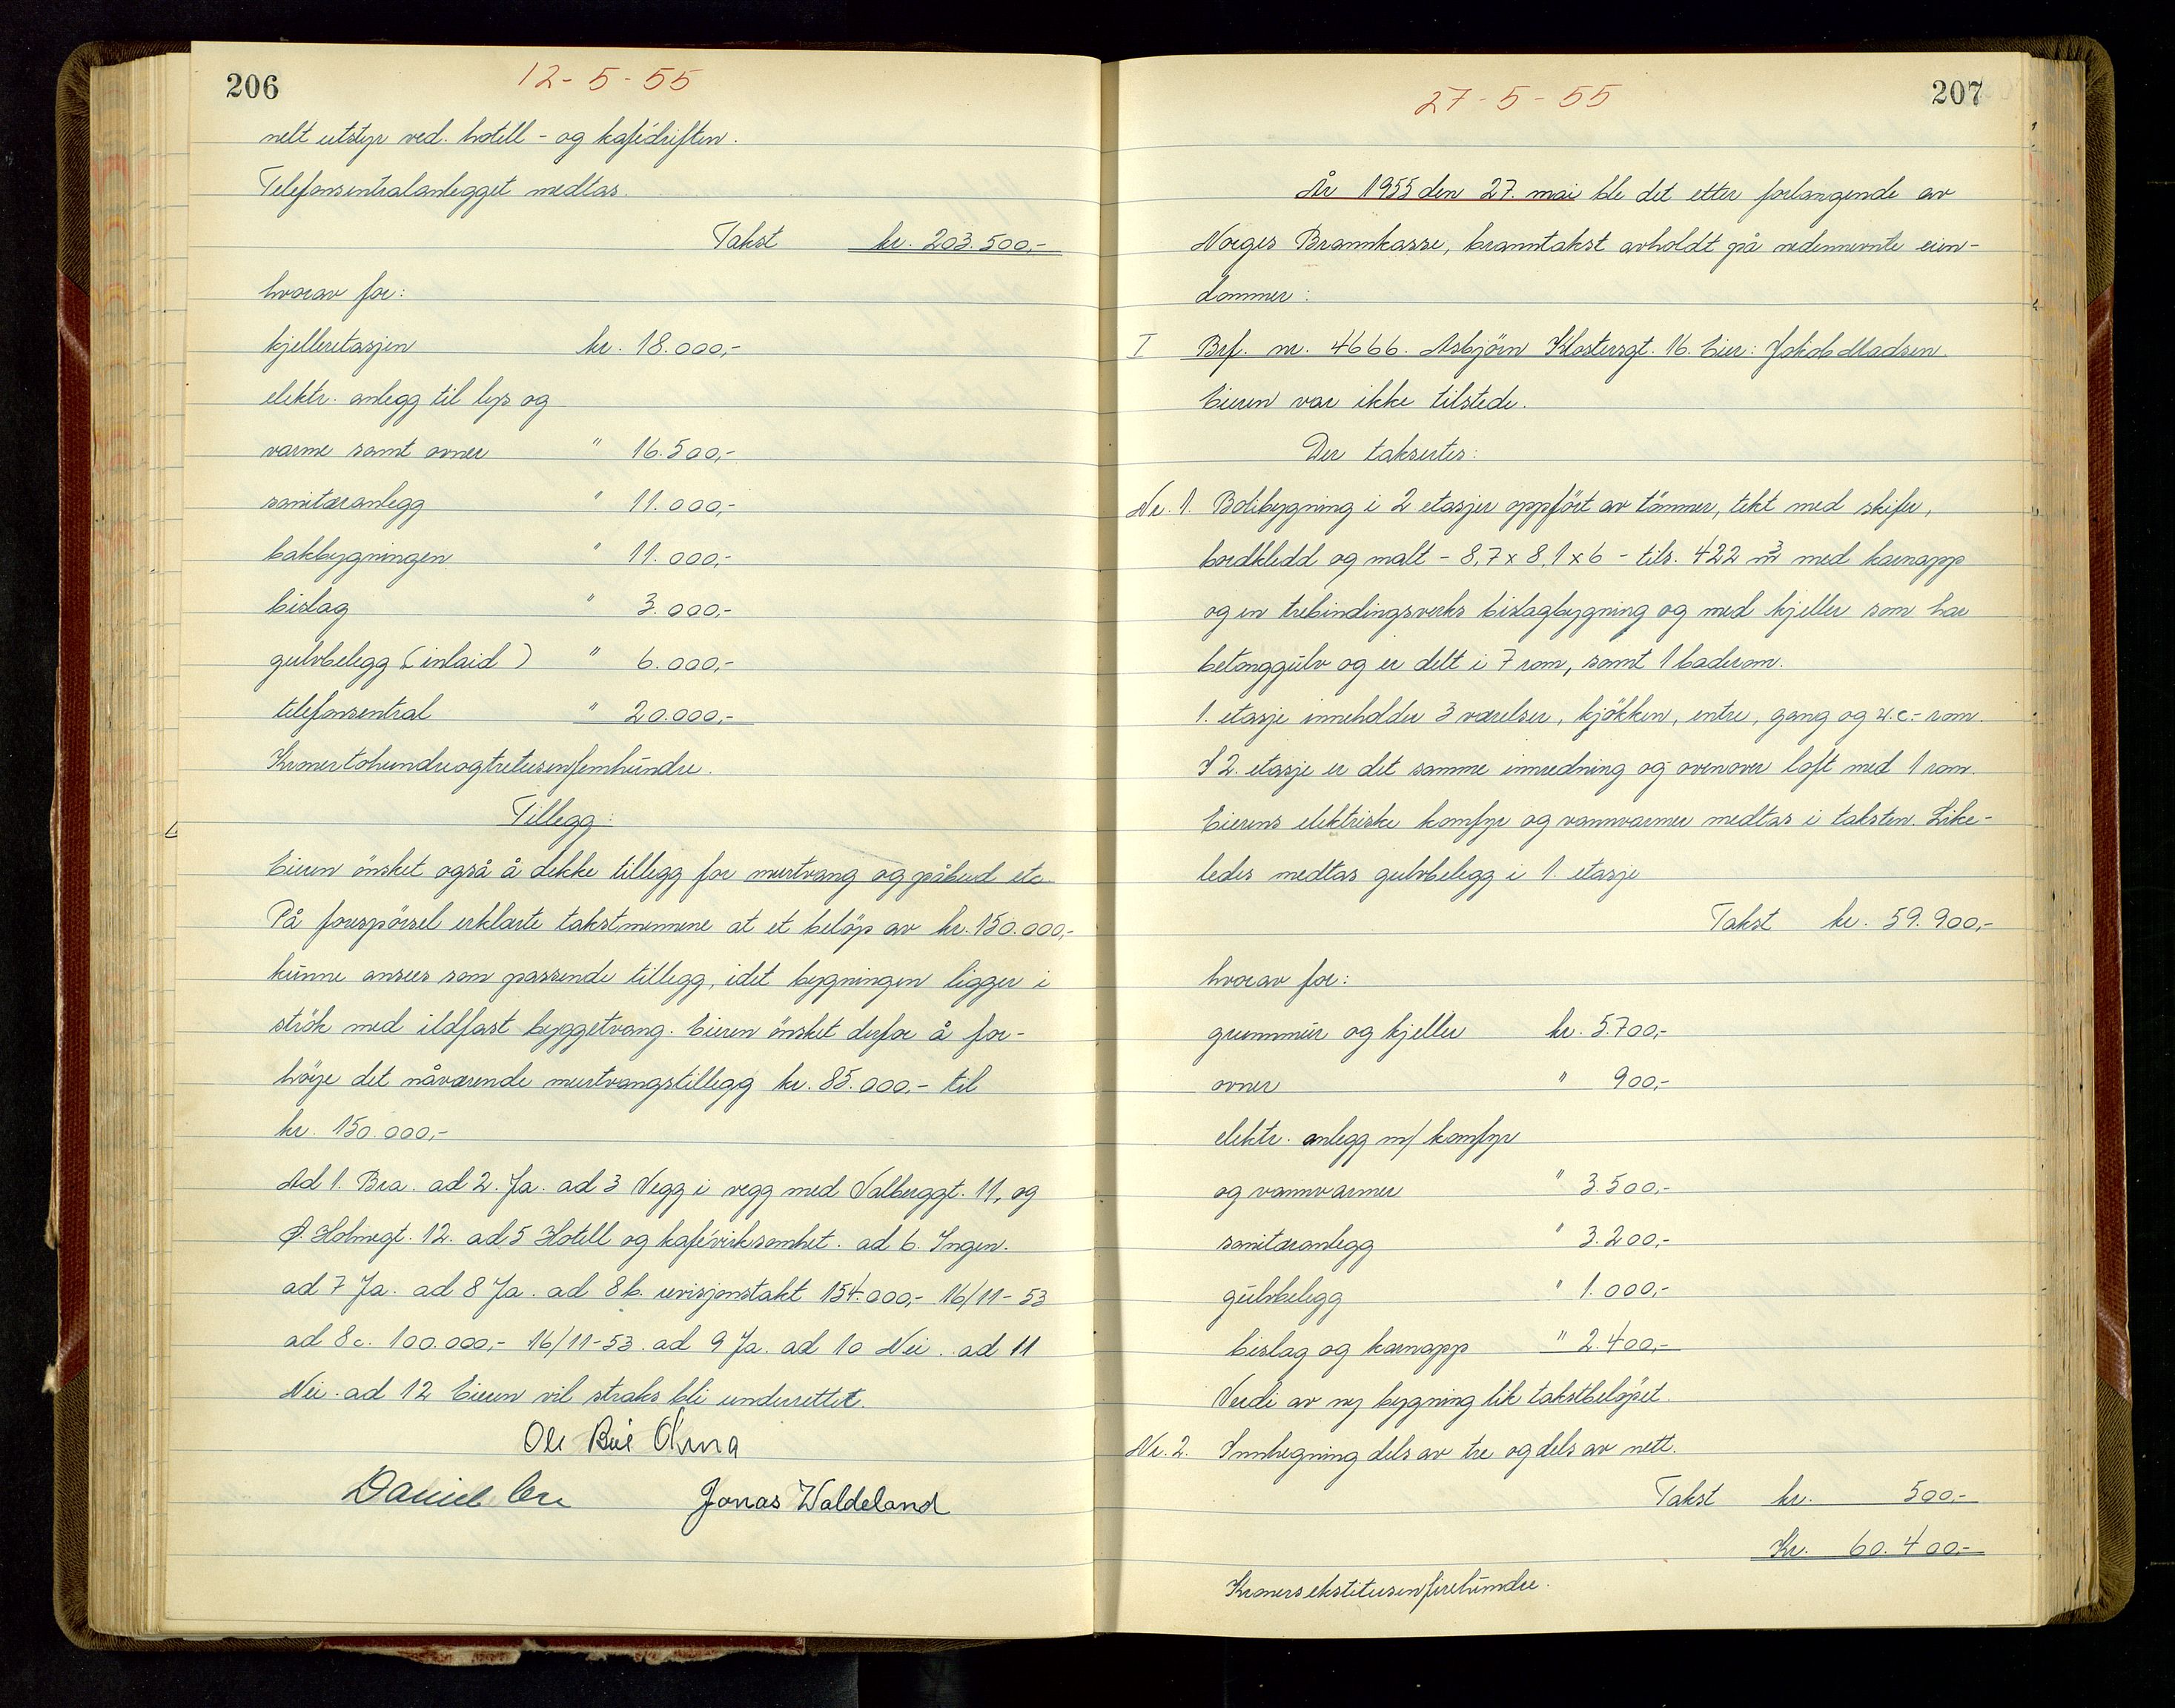 206
12-5-55
nelt utstyr ved. hotell- og kafédriften.
Telefonsentralanlegget medtas.
Takst kr. 203.500,-
hvorav for:
kjelleretasjen kr. 18.000,-
elektr. anlegg til lys og
varme samt ovner " 16.500,-
sanitæranlegg " 11.000,-
bakbygningen " 11.000,-
bislag " 3.000,-
gulvbelegg (inlaid) " 6.000,-
telefonsentral " 20.000,-
Kronertohundreogtretusenfemhundre.
Tillegg:
Eieren önsket også å dekke tillegg for murtvang og påbud etc
På forespörsel erklærte takstmennene at et belöp av kr. 150.000,-
kunne ansees som passende tillegg, idet bygningen ligger i
strök med ildfast byggetvang. Eieren önsket derfor å for-
höye det nåværende murtvangstillegg kr. 85.000,- til
kr. 150.000,-
Ad 1. Bra. ad 2. Ja. ad 3 Vegg i vegg med Valberggt. 11, og
Holmegt. 12. ad 5 Hotell og kafévirksomhet. ad 6. Ingen.
ad 7 Ja. ad 8 Ja. ad 8b. revisjonstakt 154.000,- 16/11-53
ad 8c. 100.000,- 16/11-53. ad 9 Ja. ad 10 Nei. ad 11
Nei. ad 12 Eieren vil straks bli underrettet.
Ole Bue
Daniel Jonas Waldeland
207
27-5-55
År 1955 den 27. mai ble det etter forlangende av
Norges Brannkasse, branntakst avholdt på nedennevnte eien-
dommer:
I Brf. nr. 4666. Asbjörn Klostersgt. 16. Eier: Jakob Madsen.
Eieren var ikke tilstede.
Der taksertes:
Nr. 1. Bolibygning i 2 etasjer oppfört av tömmer, tekt med skifer,
bordkledd og malt - 8,7 x 8,1 x 6 - tils. 422 m³ med karnapp
og en trebindingsverks bislagbygning og med kjeller som har
betonggulv og er delt i 7 rom, samt 1 baderom.
1. etasje inneholder 3 værelser, kjökken, entre, gang og w.c.- rom.
I 2. etasje er det samme innredning og ovenover loft med 1 rom.
Eierens elektriske komfyr og vannvarmer medtas i taksten. Like-
ledes medtas gulvbelegg i 1. etasje
Takst kr. 59.900,-
hvorav for:
grunnmur og kjeller kr. 5.700,-
ovner " 900,-
elektr. anlegg m/ komfyr
og vannvarmer " 3.500,-
sanitæranlegg " 3.200,-
gulvbelegg " 1.000,-
bislag og karnapp " 2.400,-
Verdi av ny bygning lik takstbelöpet.
Nr. 2. Innhegning dels av tre og dels av nett.
Takst kr. 500,-
Kr. 60.400,-
Kronersekstitusenfirehundre.